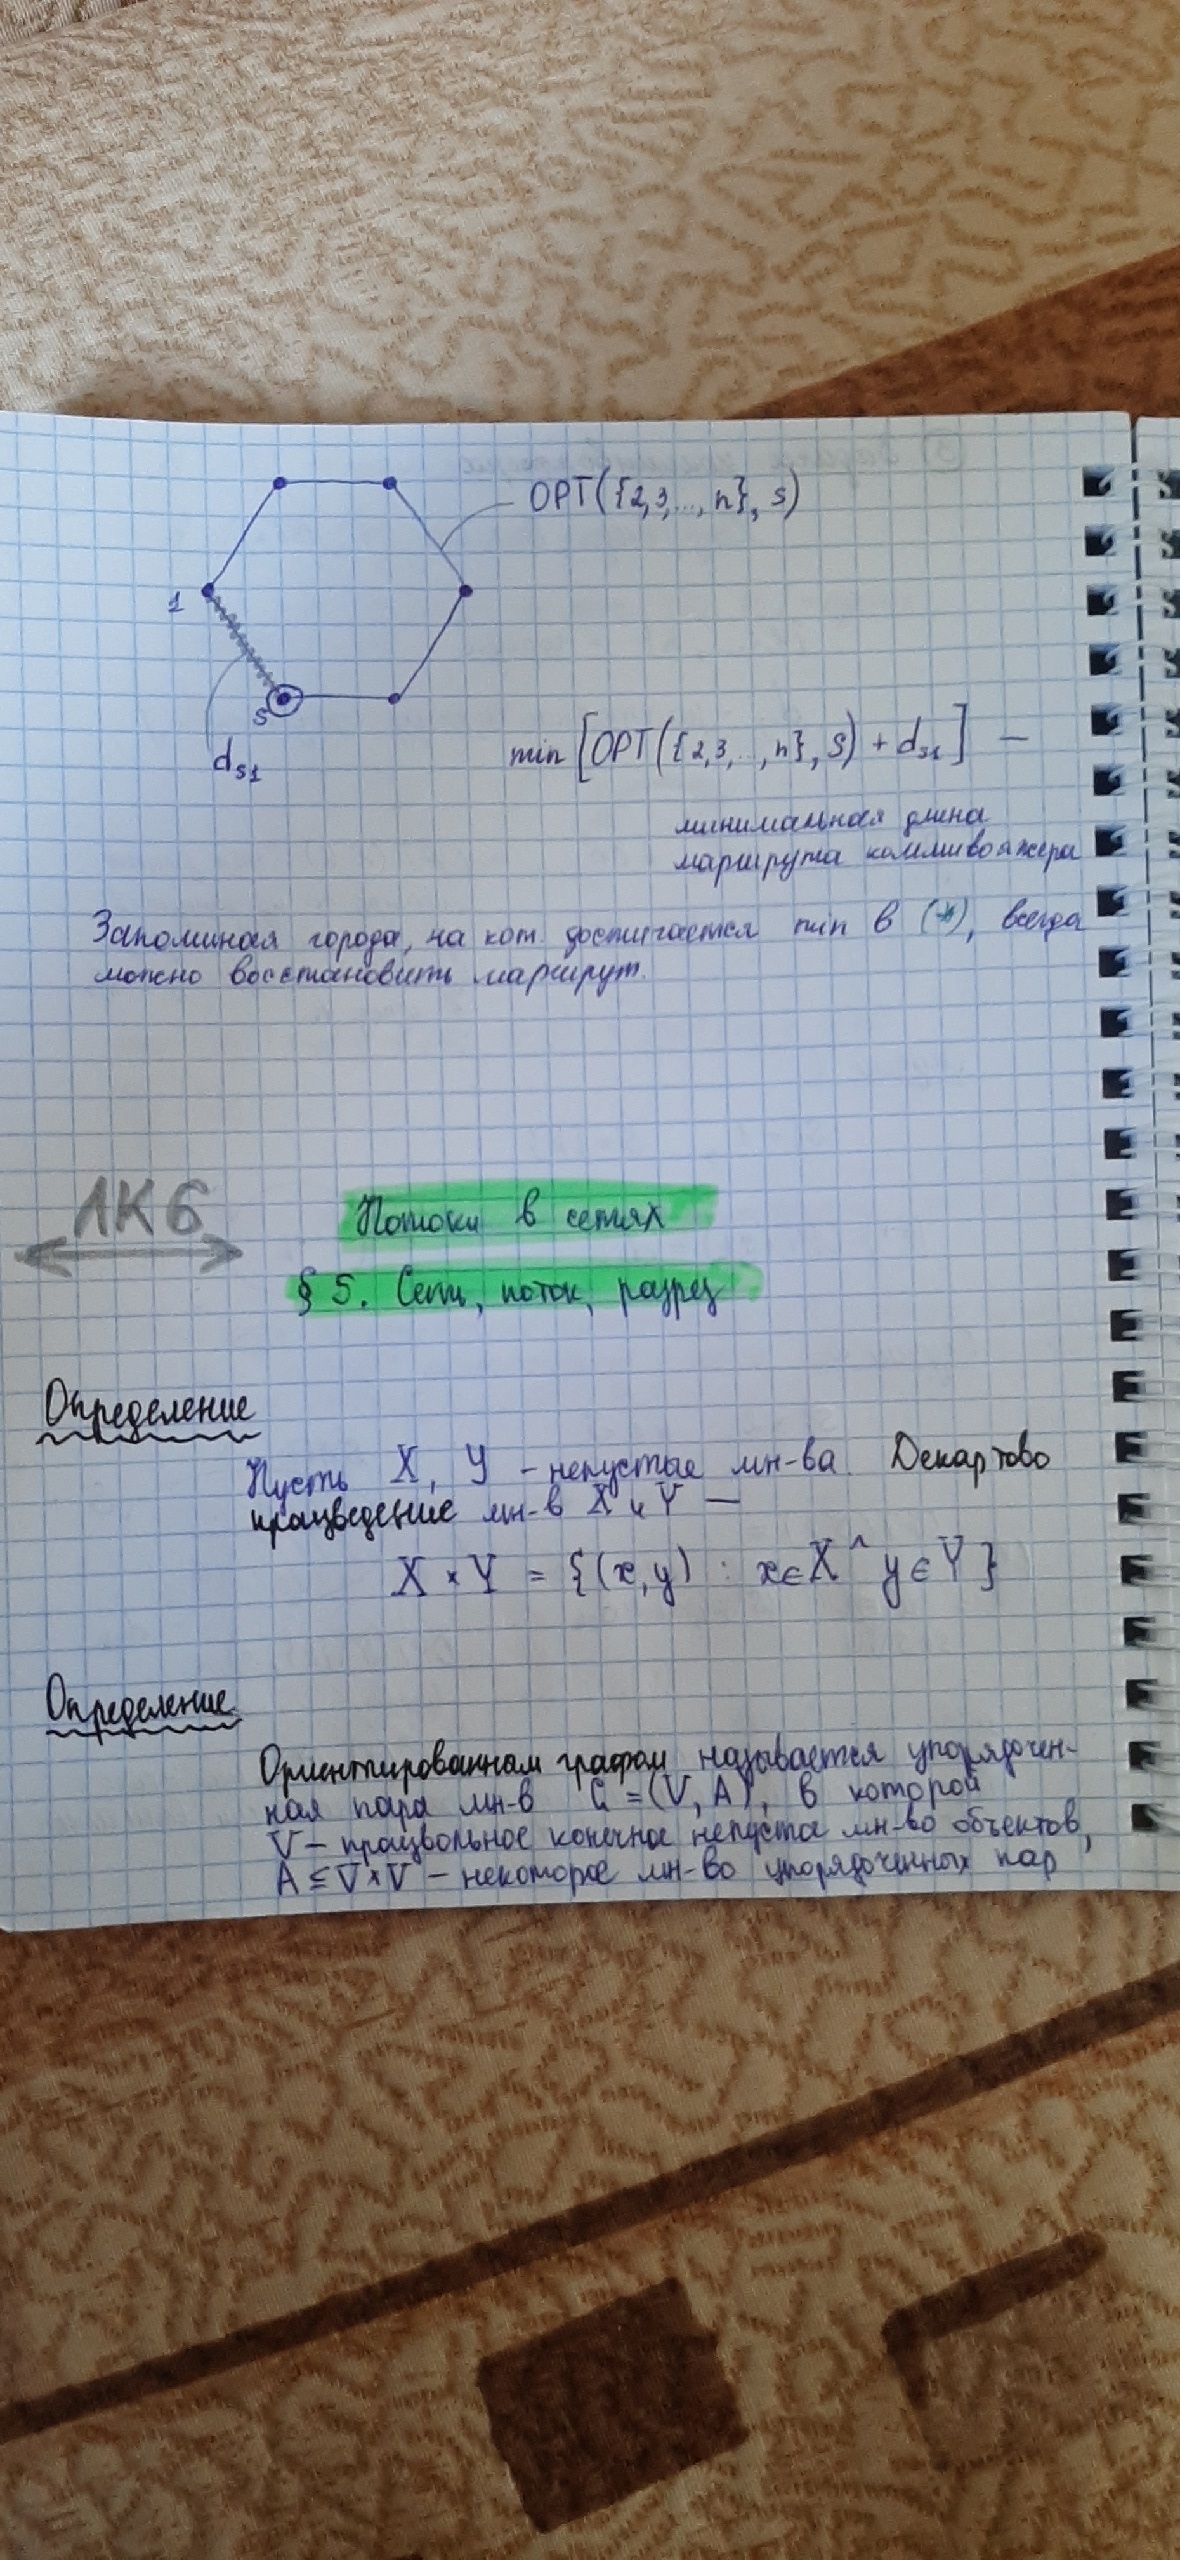 OPT({2,3,...,n}, s)
1
s
d_{s1}
min [OPT({2,3,...,n}, s) + d_{s1}] —
минимальная длина
маршрута коммивояжера
Запоминая города, на кот. достигается min в (*), всегда
можно восстановить маршрут.
ЛК 6
Потоки в сетях
§ 5. Сети, поток, разрез
Определение
Пусть X, Y – непустые мн-ва. Декартово
произведение мн-в X и Y —
X × Y = {(x,y) : x∈X ^ y∈Y}
Определение
Ориентированным графом называется упорядочен-
ная пара мн-в G = (V, A), в которой
V – произвольное конечное непустое мн-во объектов,
A ⊆ V×V – некоторое мн-во упорядоченных пар